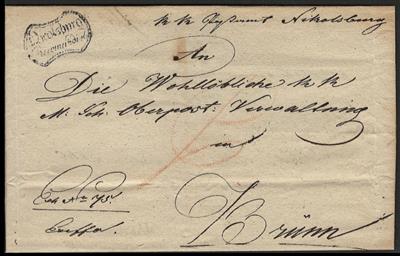 k k Postamt Nikolsburg
An
Die Wohllöbliche k k
M: Sch: Oberpost: Verwaltung
in
Brünn